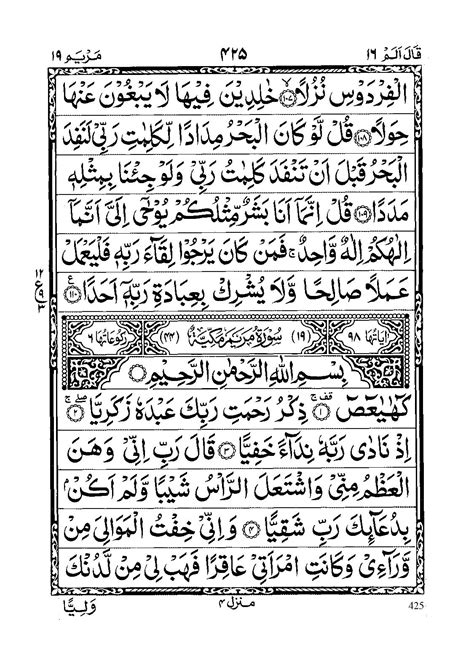 قال الم ١٦ ٤٢٥ مريم ١٩
الْفِرْدَوْسِ نُزُلًا ۙ﴿۱۰۷﴾ خٰلِدِيْنَ فِيْهَا لَا يَبْغُوْنَ عَنْهَا
حِوَلًا ﴿۱۰۸﴾ قُلْ لَّوْ كَانَ الْبَحْرُ مِدَادًا لِّكَلِمٰتِ رَبِّيْ لَنَفِدَ
الْبَحْرُ قَبْلَ اَنْ تَنْفَدَ كَلِمٰتُ رَبِّيْ وَلَوْ جِئْنَا بِمِثْلِهٖ
مَدَدًا ﴿۱۰۹﴾ قُلْ اِنَّمَاۤ اَنَا بَشَرٌ مِّثْلُكُمْ يُوْحٰۤى اِلَيَّ اَنَّمَاۤ
اِلٰهُكُمْ اِلٰهٌ وَّاحِدٌ ۚ فَمَنْ كَانَ يَرْجُوْا لِقَآءَ رَبِّهٖ فَلْيَعْمَلْ
عَمَلًا صَالِحًا وَّلَا يُشْرِكْ بِعِبَادَةِ رَبِّهٖۤ اَحَدًا ﴿۱۱۰﴾ ع
١٢ ع ٩ ٣
اٰيَاتُهَا ٩٨ (١٩) سُوْرَةُ مَرْيَمَ مَكِّيَّةٌ (٤٤) رُكُوْعَاتُهَا ٦
بِسْمِ اللهِ الرَّحْمٰنِ الرَّحِيْمِ
كٓهٰيٰعٓصٓ ﴿۱﴾ قف ج ذِكْرُ رَحْمَتِ رَبِّكَ عَبْدَهٗ زَكَرِيَّا ﴿۲﴾ صلے ج
اِذْ نَادٰى رَبَّهٗ نِدَآءً خَفِيًّا ﴿۳﴾ قَالَ رَبِّ اِنِّيْ وَهَنَ
الْعَظْمُ مِنِّيْ وَاشْتَعَلَ الرَّاْسُ شَيْبًا وَّلَمْ اَكُنْۢ
بِدُعَآئِكَ رَبِّ شَقِيًّا ﴿۴﴾ وَاِنِّيْ خِفْتُ الْمَوَالِيَ مِنْ
وَّرَآءِيْ وَكَانَتِ امْرَاَتِيْ عَاقِرًا فَهَبْ لِيْ مِنْ لَّدُنْكَ
وَلِيًّا منزل ٤ 425